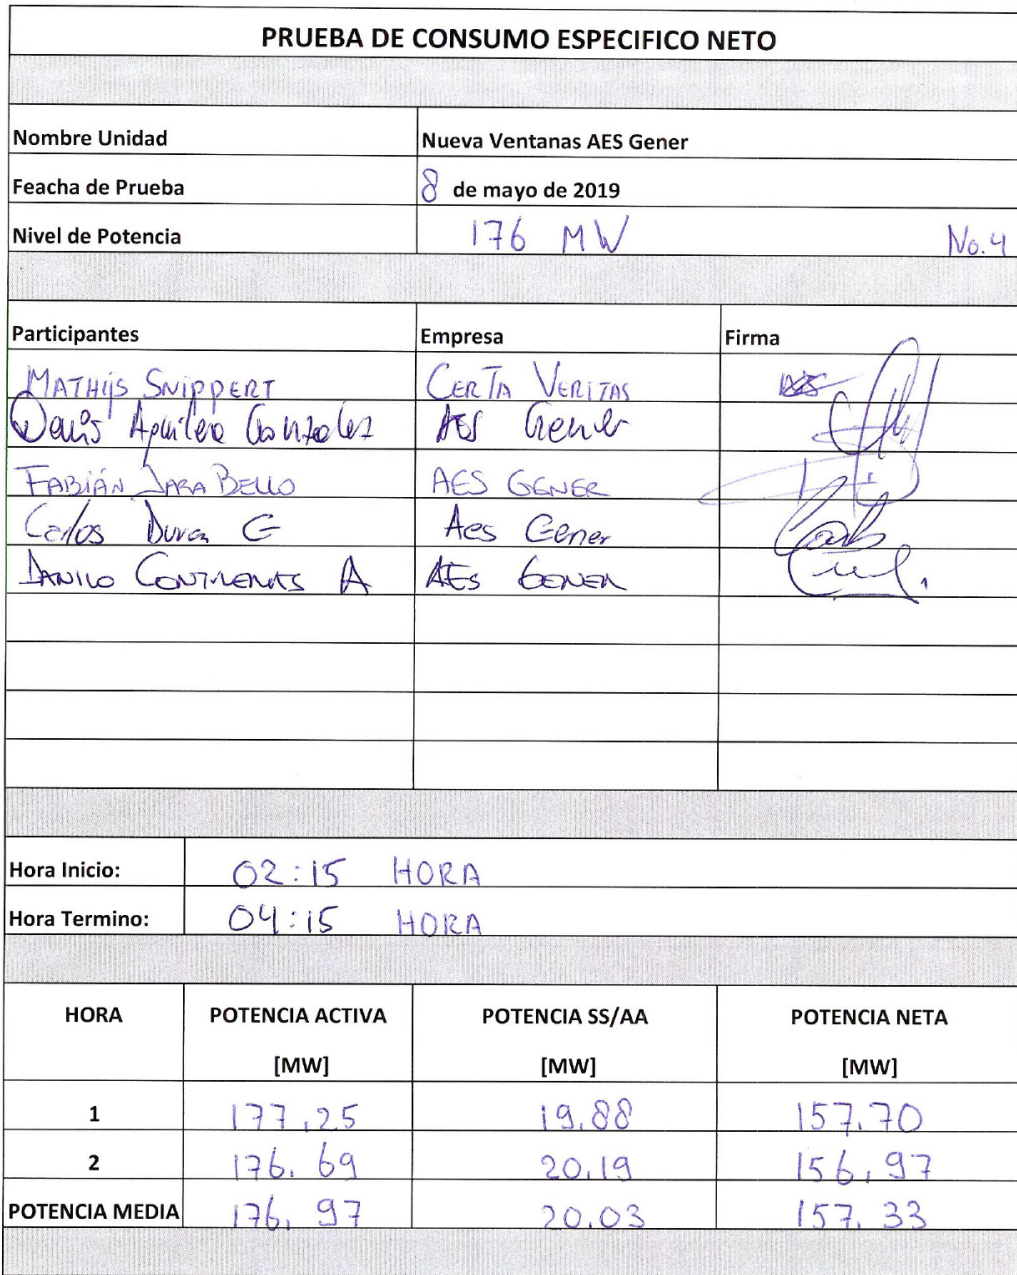 PRUEBA DE CONSUMO ESPECIFICO NETO
Nombre Unidad Nueva Ventanas AES Gener
Feacha de Prueba 8 de mayo de 2019
Nivel de Potencia 176 MW No.4
Participantes Empresa Firma
MATHIJS SNIPPERT CERTA VERITAS
Denis Aguilera Gonzalez AES Gener
FABIÁN JARA BELLO AES GENER
Carlos Duran G Aes Gener
DANILO CONTRERAS A AES GENER
Hora Inicio: 02:15 HORA
Hora Termino: 04:15 HORA
HORA POTENCIA ACTIVA POTENCIA SS/AA POTENCIA NETA
[MW] [MW] [MW]
1 177,25 19,88 157,70
2 176,69 20,19 156,97
POTENCIA MEDIA 176,97 20.03 157,33